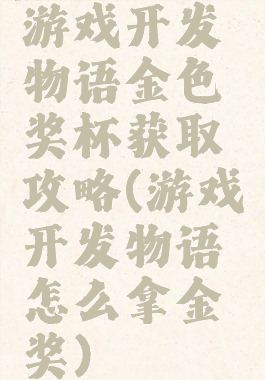 游戏开发
物语金色
奖杯获取
攻略(游戏
开发物语
怎么拿金
奖)